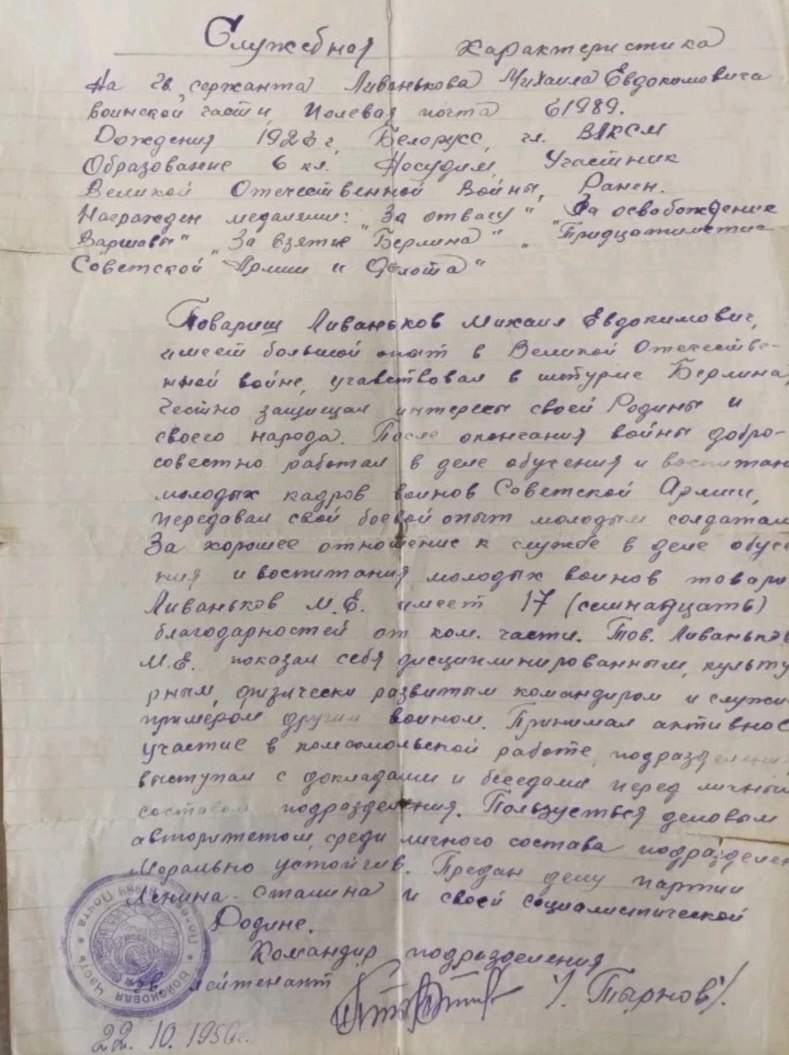 Служебная характеристика
На гв. сержанта Ливанькова Михаила Евдокимовича
воинской части, Полевая почта 61989.
Рождения 1926 г, Белорус, чл. ВЛКСМ
Образование 6 кл. Несудим, Участник
Великой Отечественной Войны, Ранен.
Награжден медалями: "За отвагу" "За освобождение
Варшавы" "За взятие Берлина" "Тридцатилетие
Советской Армии и Флота"
Товарищ Ливаньков Михаил Евдокимович,
имеет большой опыт в Великой Отечестве-
нной войне, учавствовал в штурме Берлина,
Честно защищал интересы своей Родины и
своего народа. После окончания войны добро-
совестно работал в деле обучения и воспитан
молодых кадров воинов Советской Армии,
передавал свой боевой опыт молодым солдатам
За хорошее отношение к службе в деле обуче
ния и воспитания молодых воинов товари
Ливаньков М.Е. имеет 17 (семнадцать)
благодарностей от ком. части. Тов. Ливаньков
М.Е. показал себя дисциплинированным, культу
рным, физически развитым командиром и служи
примером другим воином. Принимал активное
участие в комсомольской работе, подразделения
выступал с докладами и беседами перед личным
составом подразделения. Пользуеться деловым
авторитетом среди личного состава подразделен
Морально устойчив. Предан делу партии
Ленина-Сталина и своей социалистической
Родине.
Командир подразделения
гв. лейтенант /Тырнов/.
Войсковая Часть * Полевая Почта
22.10.1950г.